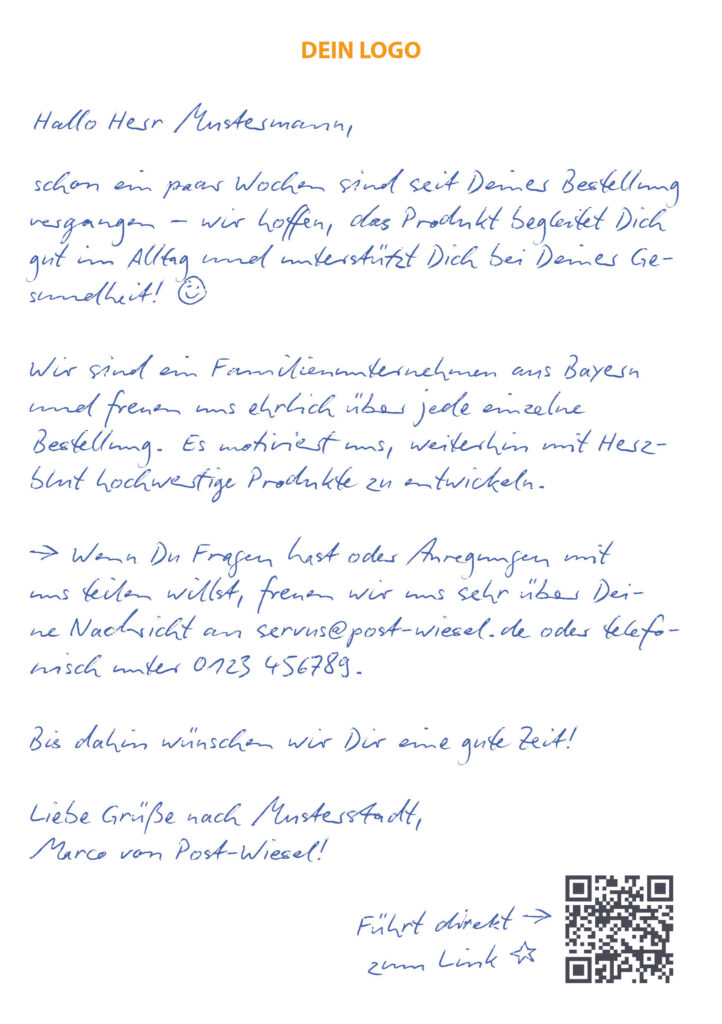 DEIN LOGO
Hallo Herr Mustermann,
schon ein paar Wochen sind seit Deiner Bestellung
vergangen – wir hoffen, das Produkt begleitet Dich
gut im Alltag und unterstützt Dich bei Deiner Ge-
sundheit! ☺
Wir sind ein Familienunternehmen aus Bayern
und freuen uns ehrlich über jede einzelne
Bestellung. Es motiviert uns, weiterhin mit Herz-
blut hochwertige Produkte zu entwickeln.
→ Wenn Du Fragen hast oder Anregungen mit
uns teilen willst, freuen wir uns sehr über Dei-
ne Nachricht an servus@post-wiesel.de oder telefo-
nisch unter 0123 456789.
Bis dahin wünschen wir Dir eine gute Zeit!
Liebe Grüße nach Musterstadt,
Marco von Post-Wiesel!
Führt direkt →
zum Link ☆